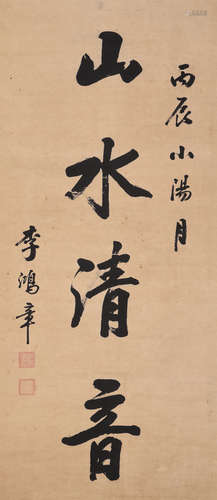 丙辰小陽月
山水清音
李鴻章